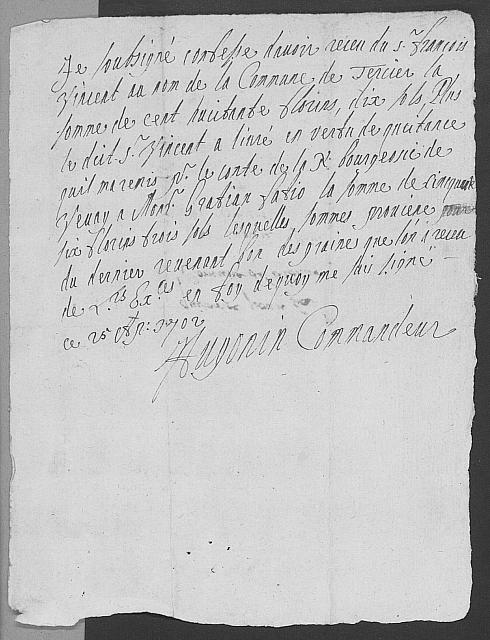 Je soubsigné confesse davoir receu du Sr. françois
Vincent au nom de la Commune de Tercier la
somme de cent huictante florins, dix sols, Plus
le dict Sr. Vincent a livré en vertu de quictance
quil maremis pr. le conte de la Ne. bourgeoisie de
Vevay a Monsr. gratian fatio la somme de cinquante
six florins trois sols lesquelles sommes proviene
du dernier revenant bon des graine que lon a receu
de L.rs Ex.ces en foy dequoy me suis signé
ce 25 1702
Hugonin Commandeur